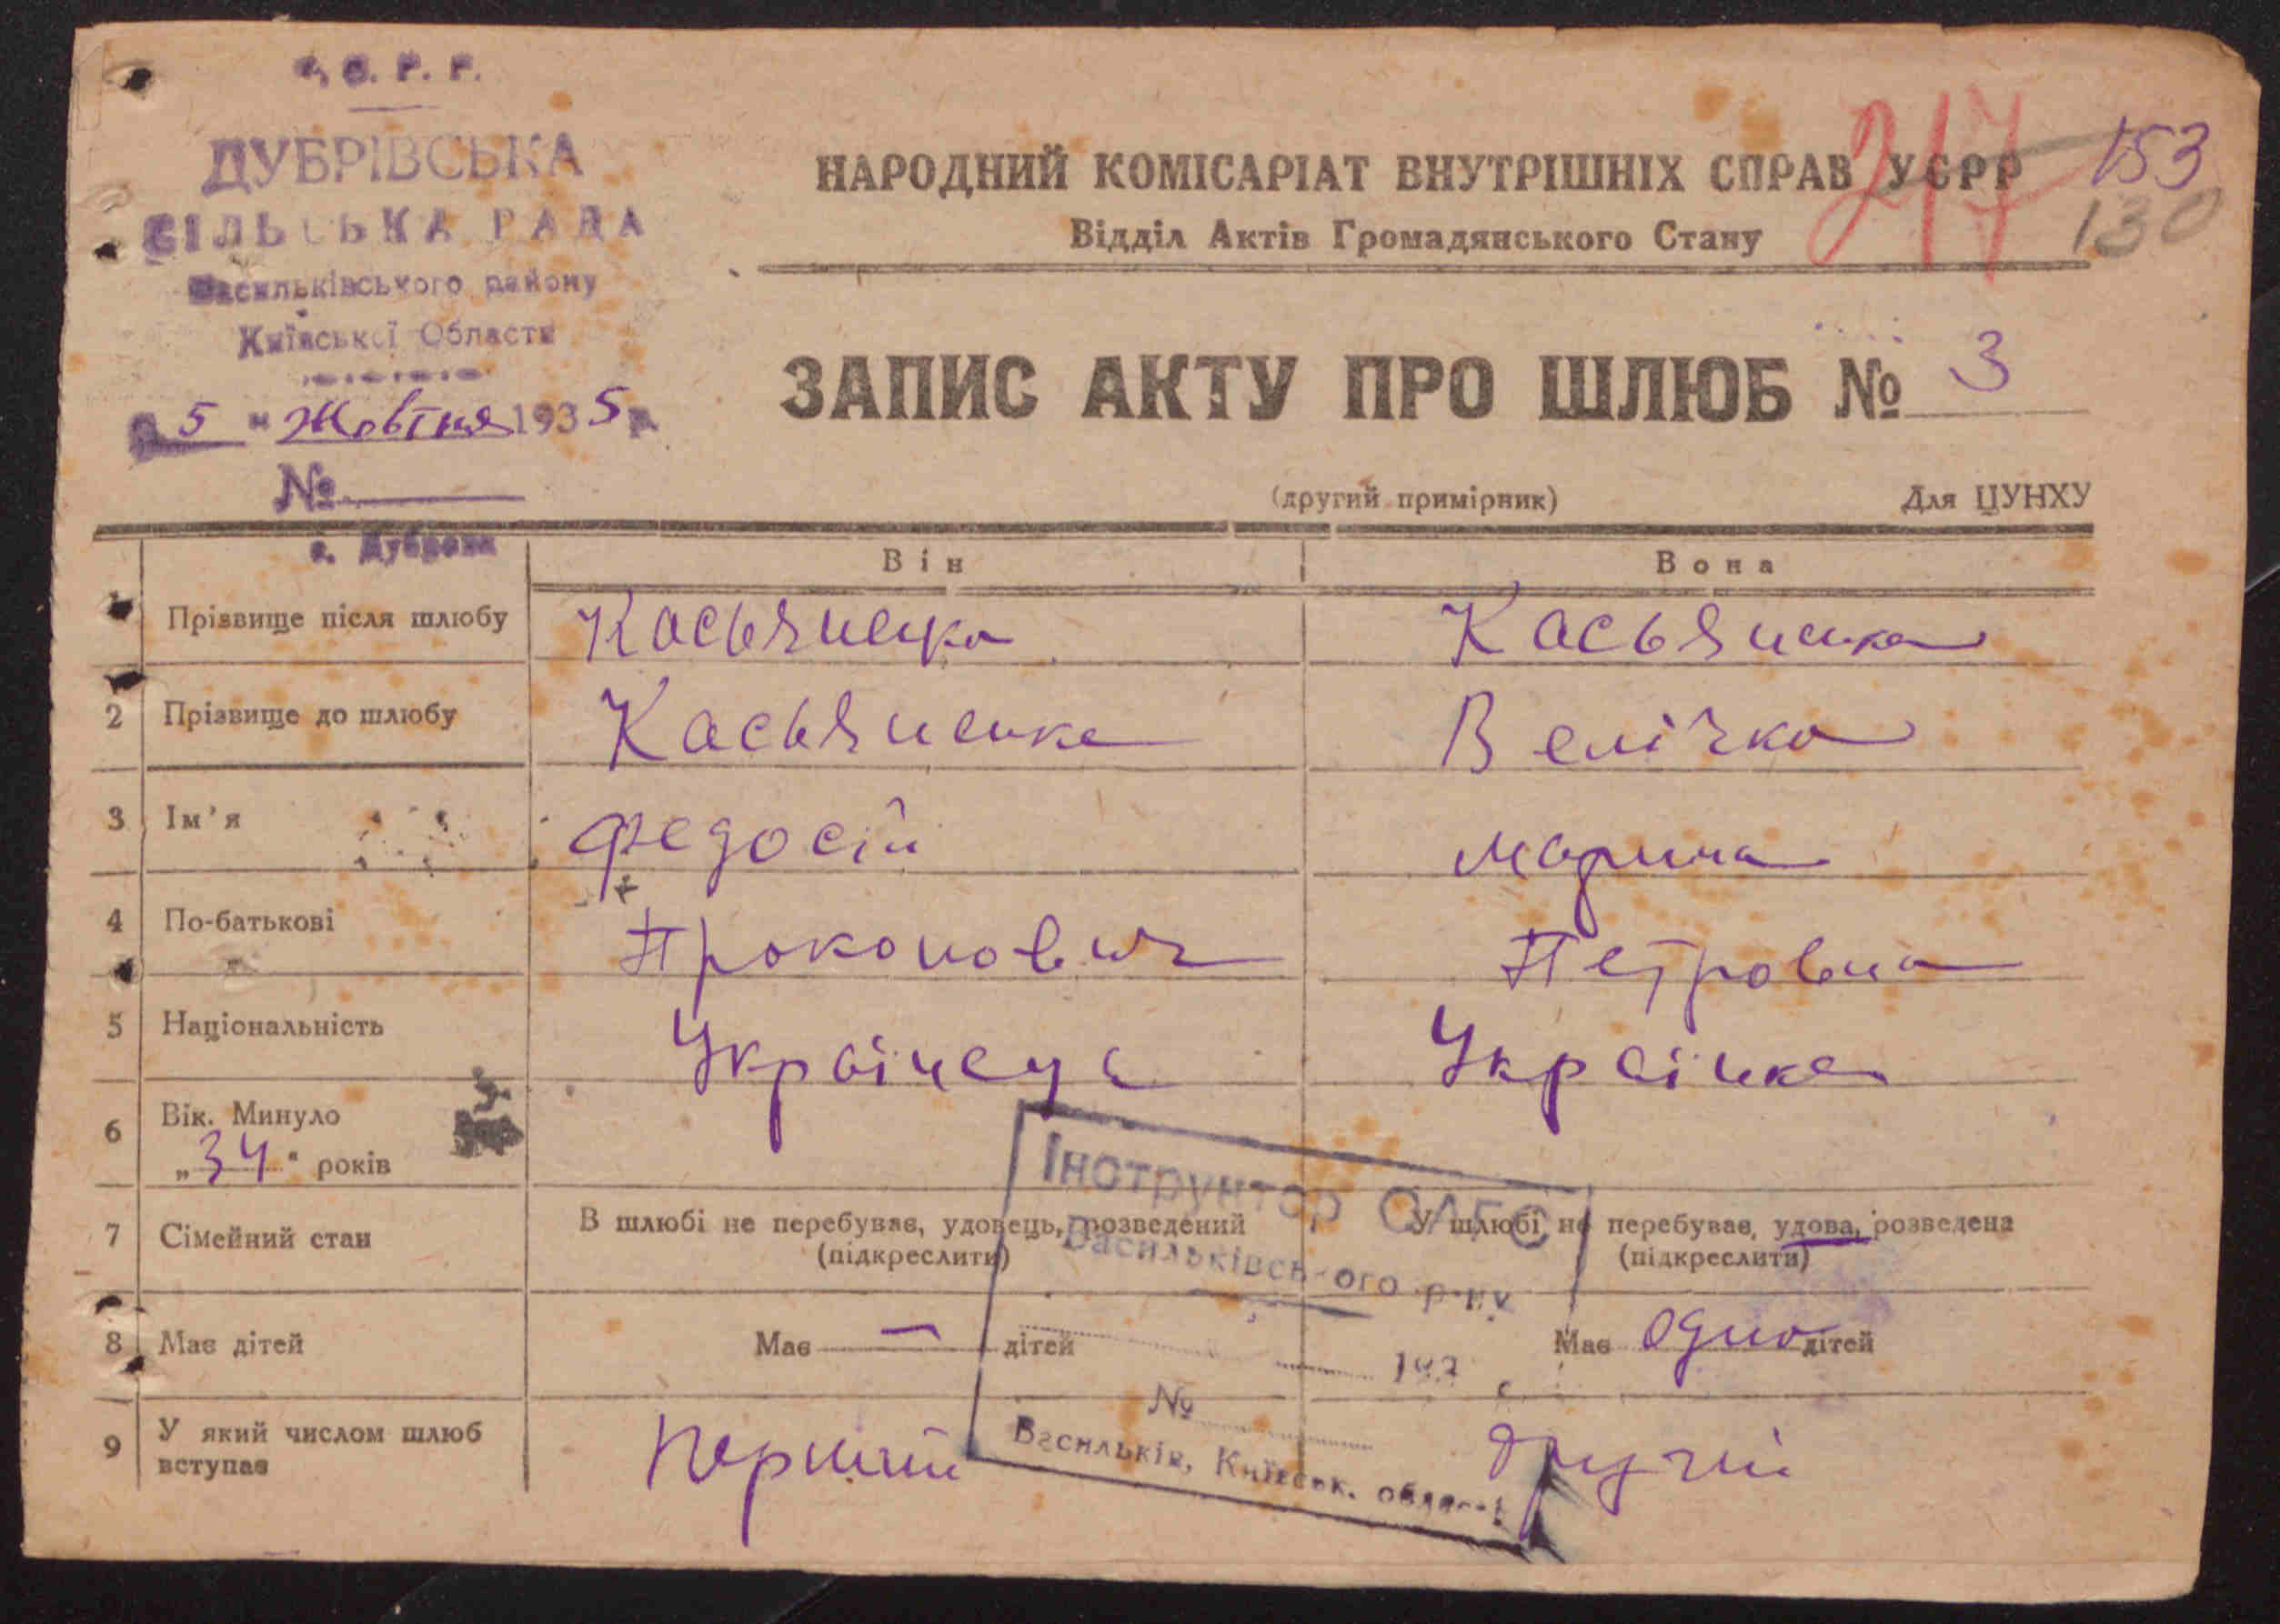 У. С. Р. Р.
ДУБРІВСЬКА
СІЛЬСЬКА РАДА
Васильківського району
Київської Області
„5" Жовтня 1935 р.
№
с. Дуброва
НАРОДНИЙ КОМІСАРІАТ ВНУТРІШНІХ СПРАВ УСРР
Відділ Актів Громадянського Стану
217
153
130
ЗАПИС АКТУ ПРО ШЛЮБ № 3
(другий примірник) Для ЦУНХУ
Він Вона
1 Прізвище після шлюбу Касьяненко Касьяненко
2 Прізвище до шлюбу Касьяненко Велічко
3 Ім'я Федосій Марина
4 По-батькові Прокопович Петровна
5 Національність Українець Українка
6 Вік. Минуло
„34" років
7 Сімейний стан В шлюбі не перебував, удовець, розведений (підкреслити) У шлюбі не перебував, удова, розведена (підкреслити)
8 Має дітей Має — дітей Має одно дітей
9 У який числом шлюб вступає Перший другий
Інструктор ОАГС
Васильківського р-ну
193
№
Васильків, Київськ. області